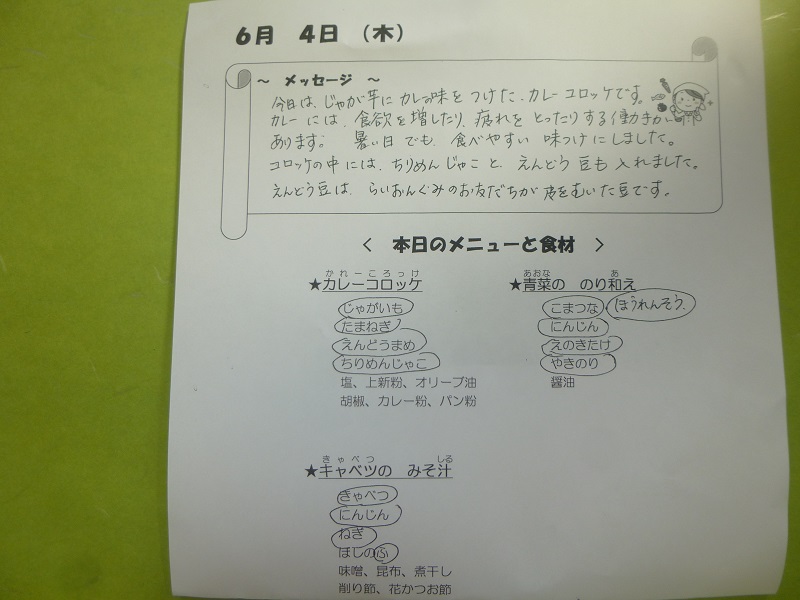 6月 4日 (木)
～ メッセージ ～
今日は、じゃが芋にカレー味をつけた、カレーコロッケです。
カレーには、食欲を増したり、疲れをとったりする働きが
あります。 暑い日でも、食べやすい味つけにしました。
コロッケの中には、ちりめんじゃこと、えんどう豆も入れました。
えんどう豆は、らいおんぐみのお友だちが皮をむいた豆です。
＜ 本日のメニューと食材 ＞
かれーころっけ
★カレーコロッケ
じゃがいも
たまねぎ
えんどうまめ
ちりめんじゃこ
塩、上新粉、オリーブ油
胡椒、カレー粉、パン粉
あおな あ
★青菜の のり和え
こまつな ほうれんそう
にんじん
えのきたけ
やきのり
醤油
きゃべつ しる
★キャベツの みそ汁
きゃべつ
にんじん
ねぎ
ほしのふ
味噌、昆布、煮干し
削り節、花かつお節